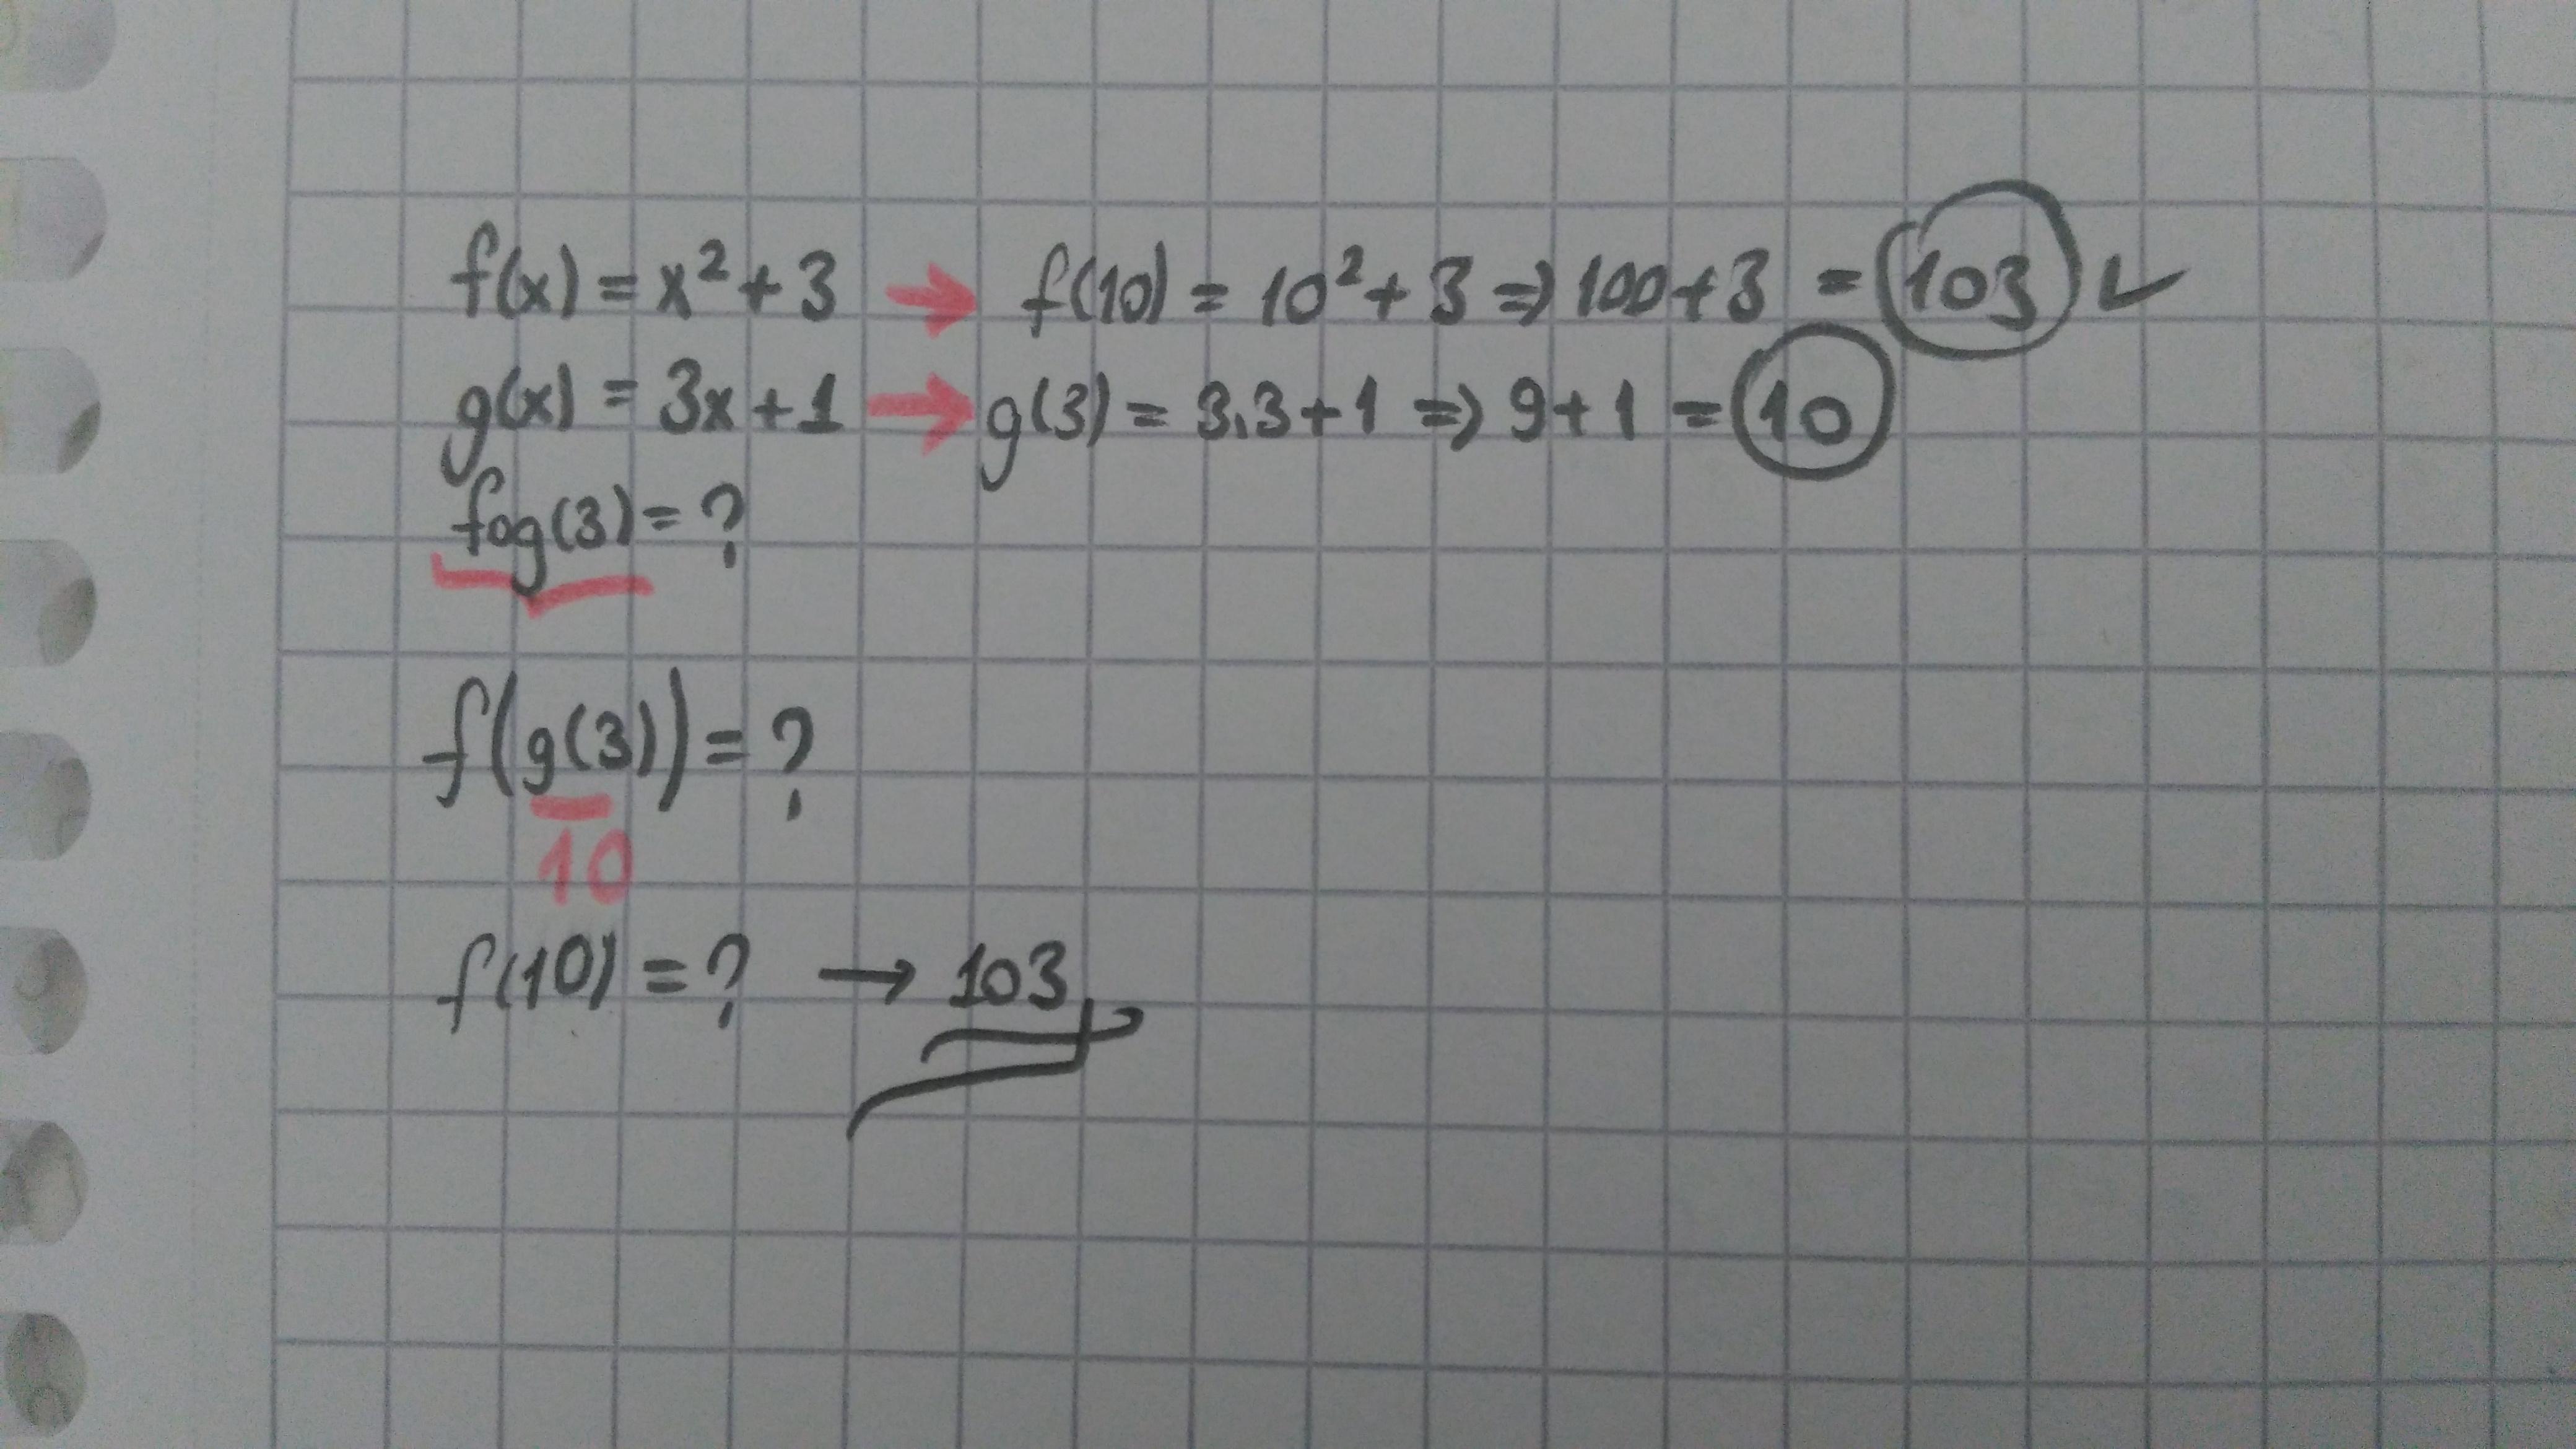 f(x) = x² + 3 → f(10) = 10² + 3 ⇒ 100 + 3 = 103 ✓
g(x) = 3x + 1 → g(3) = 3.3 + 1 ⇒ 9 + 1 = 10
fog(3) = ?
f(g(3)) = ?
10
f(10) = ? → 103